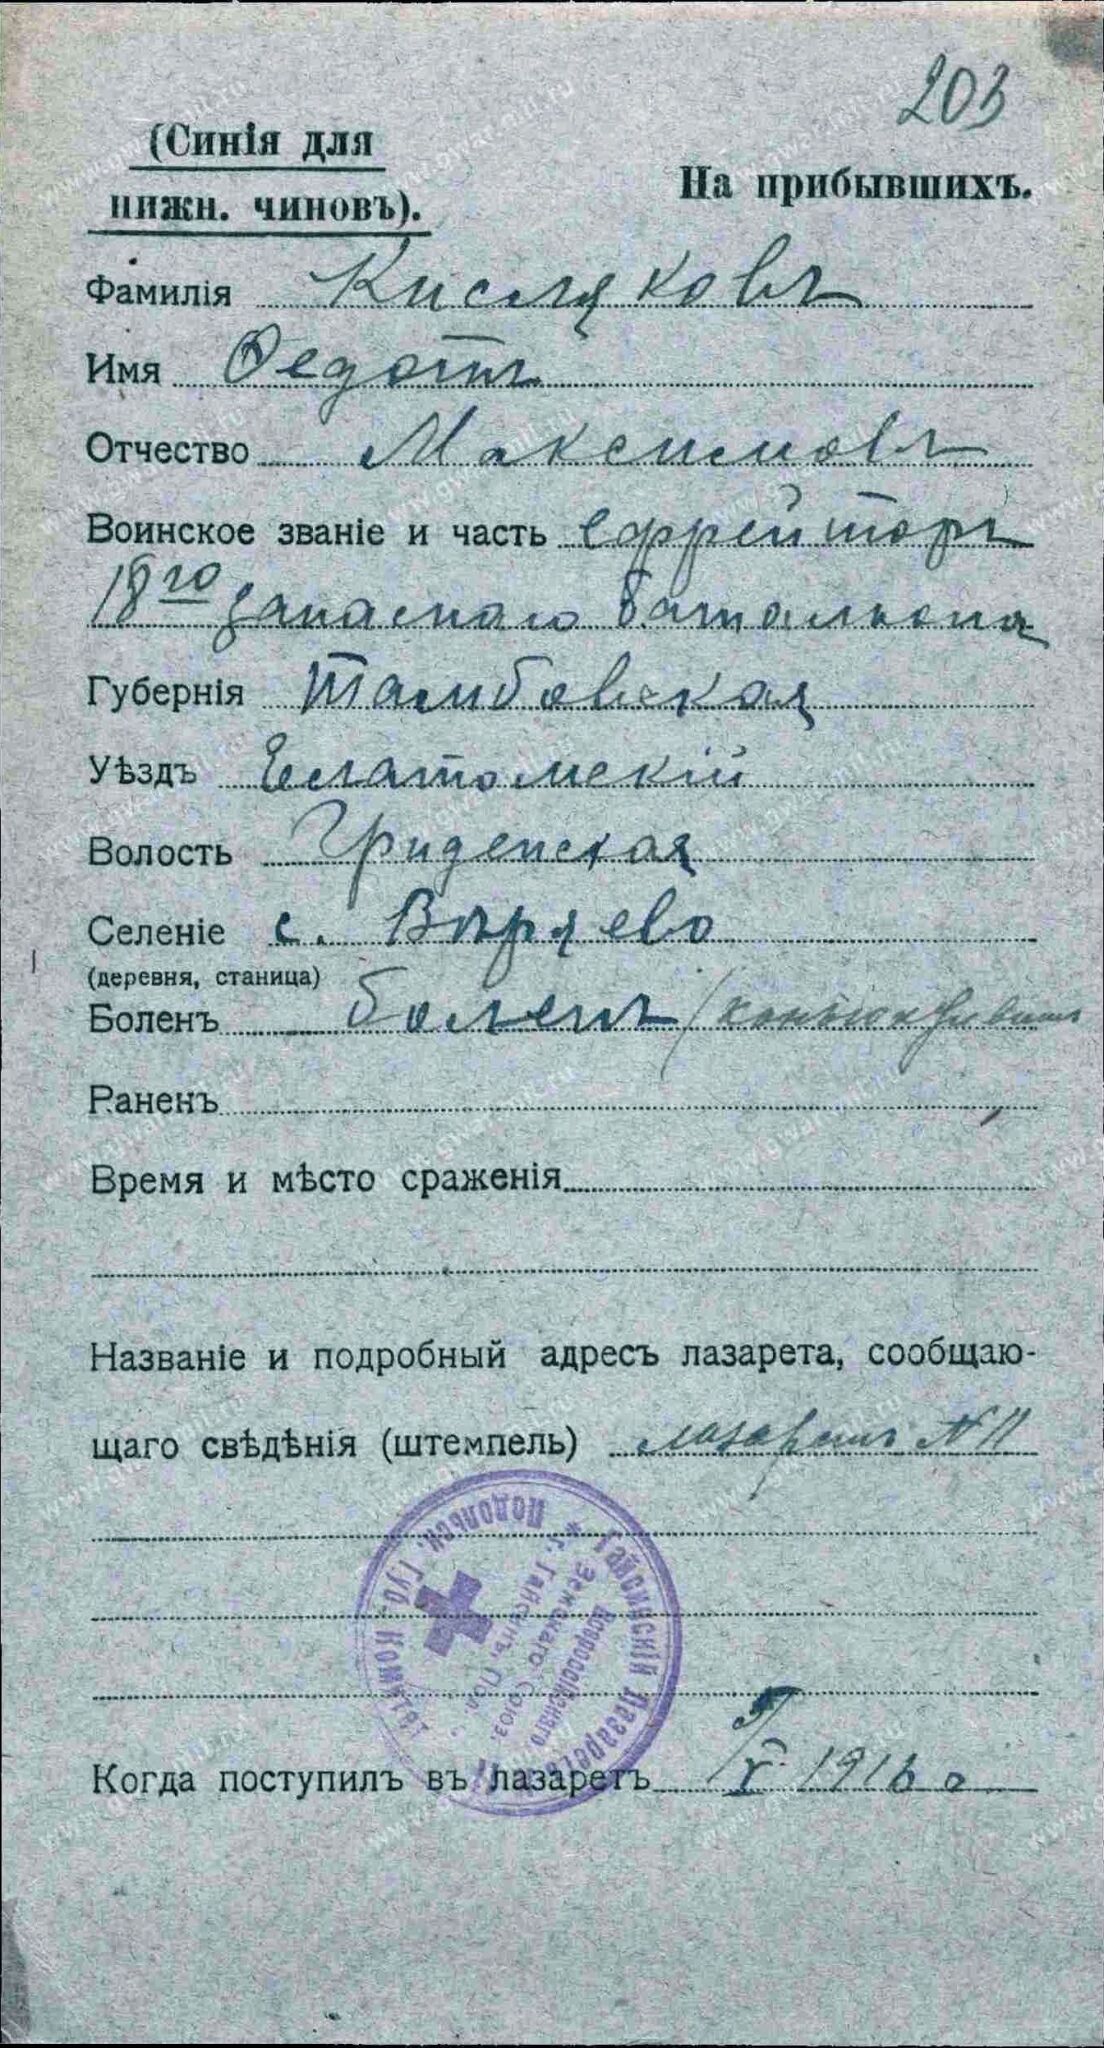 203
(Синія для
нижн. чиновъ).
На прибывшихъ.
Фамилія Кисляковъ
Имя Федотъ
Отчество Максимовъ
Воинское званіе и часть ефрейторъ
18го запаснаго баталіона
Губернія Тамбовская
Уѣздъ Елатомскій
Волость
Селеніе с. Вяряево
(деревня, станица)
Боленъ боленъ /коньюктивитъ
Раненъ
Время и мѣсто сраженія
Названіе и подробный адресъ лазарета, сообщаю-
щаго свѣдѣнія (штемпель) лазаретъ № 11
* Гайсинскій Лазаретъ
Подольск. Губ. Комитета
Всероссійскаго
Земскаго Союз.
г. Гайсинъ, Под.
Когда поступилъ въ лазаретъ /V 1916 г
www.gwar.mil.ru